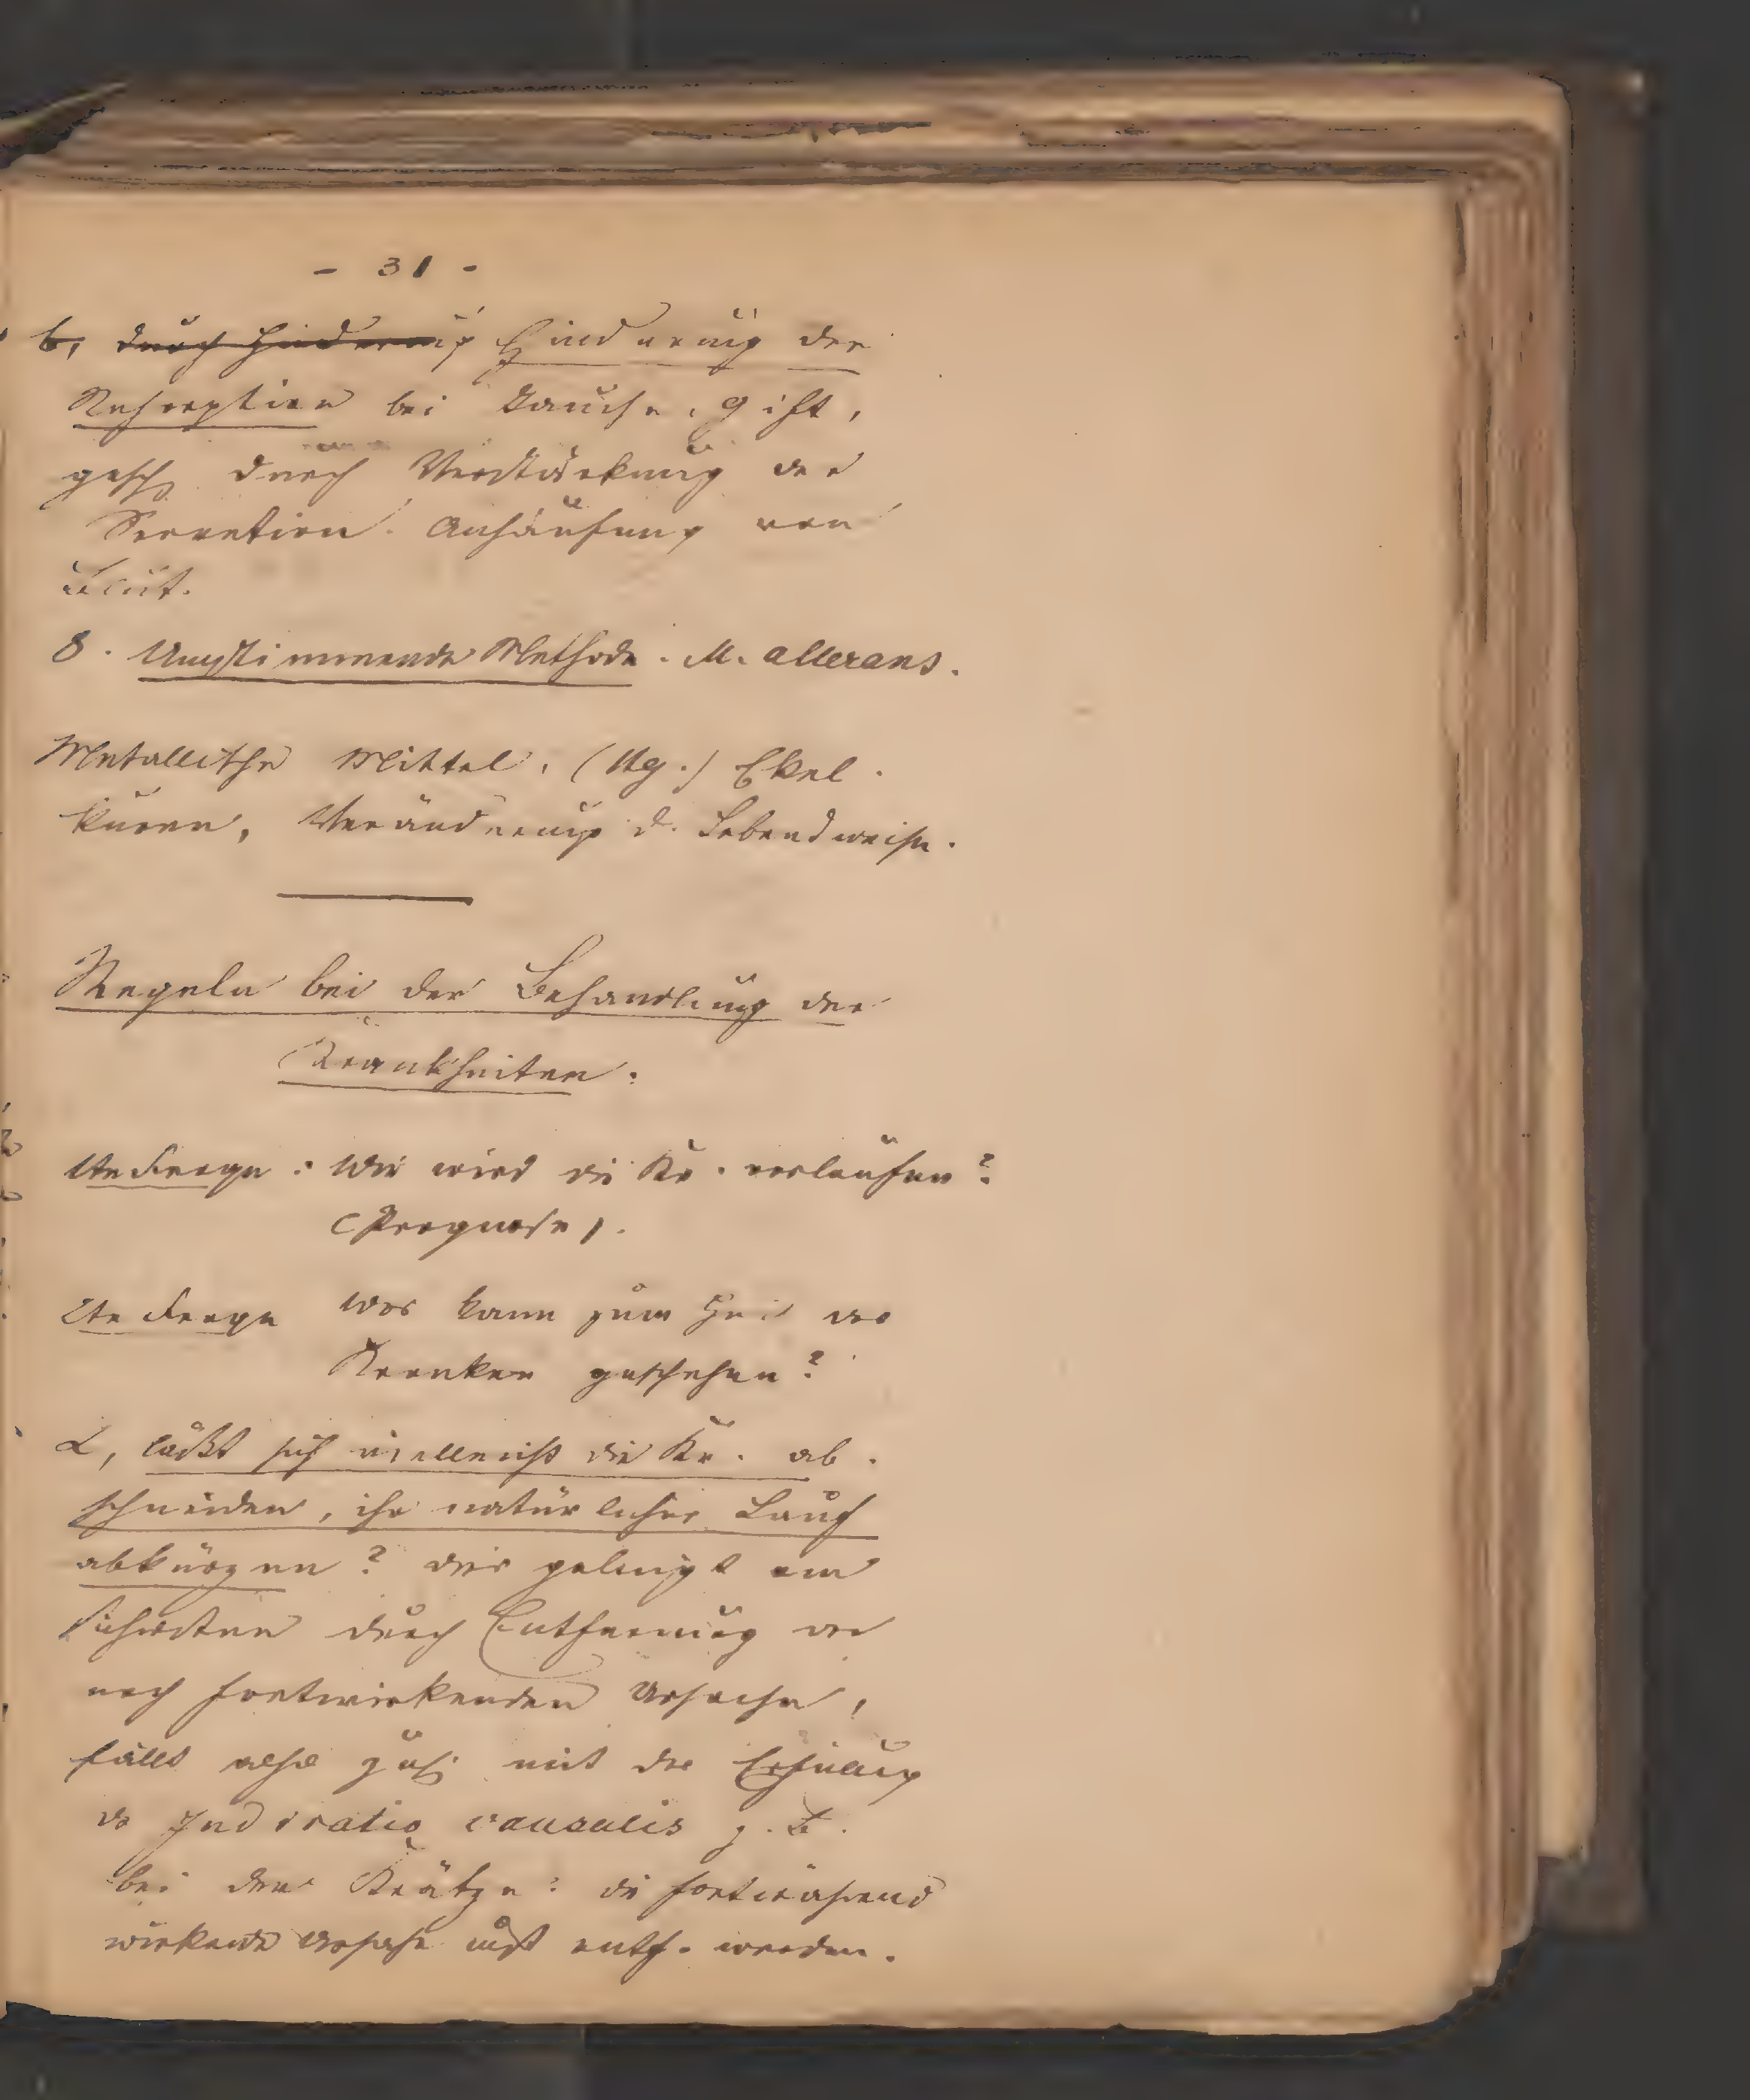 - 31 -
b, durch Hinderung Hinderung der
Resorption bei Jauche, Gift,
gesch. durch Verstärkung der
Secretion. Anhäufung von
Blut.
8. Umstimmende Methode. M. alterans.
Metallische Mittel. (Hg.) Ekel-
kuren, Veränderung d. Lebensweise.
Regeln bei der Behandlung der
Krankheiten:
1te Frage: Wie wird die Kr. verlaufen?
(Prognose).
2te Frage Was kann zum Heil des
Kranken geschehen?
α, läßt sich vielleicht die Kr. ab-
schneiden, ihr natürlicher Lauf
abkürzen? dies gelingt am
sichersten durch Entfernung der
noch fortwirkenden Ursache,
fällt also mit der Erfüllung
der Indicatio causalis z. B.
bei der Krätze: die fortwährend
wirkende Ursache muß entf. werden.